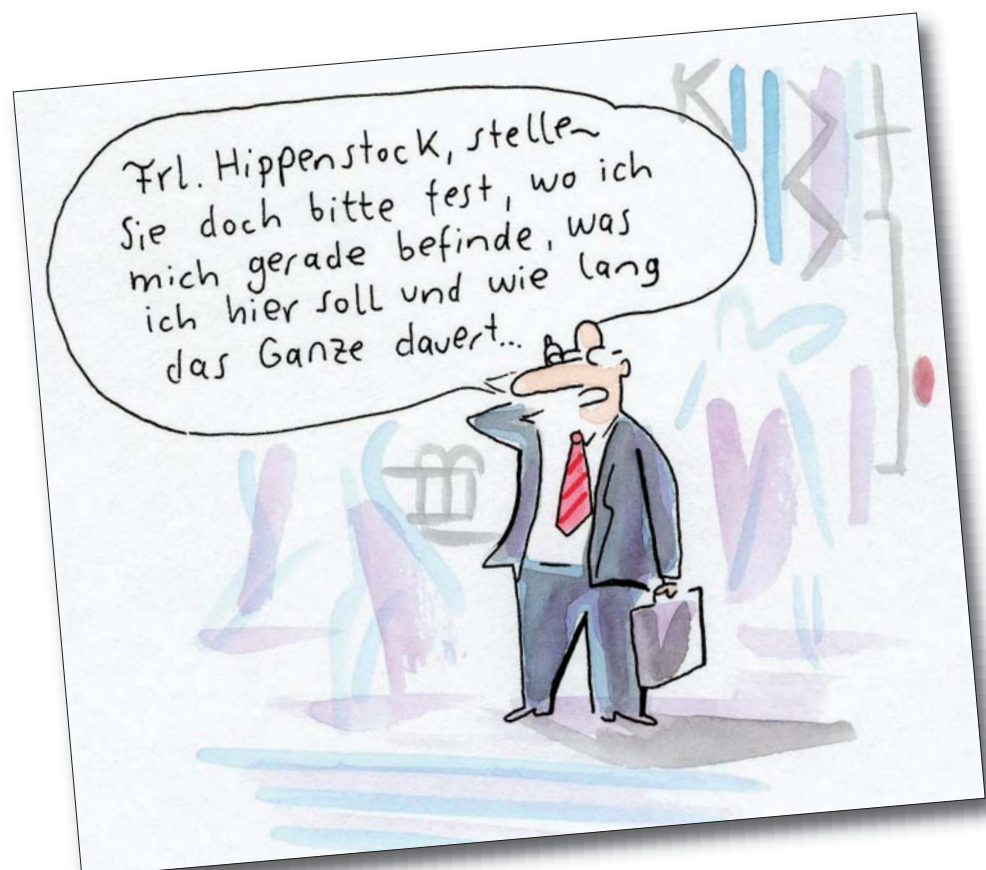 Frl. Hippenstock, stellen
Sie doch bitte fest, wo ich
mich gerade befinde, was
ich hier soll und wie lang
das Ganze dauert...